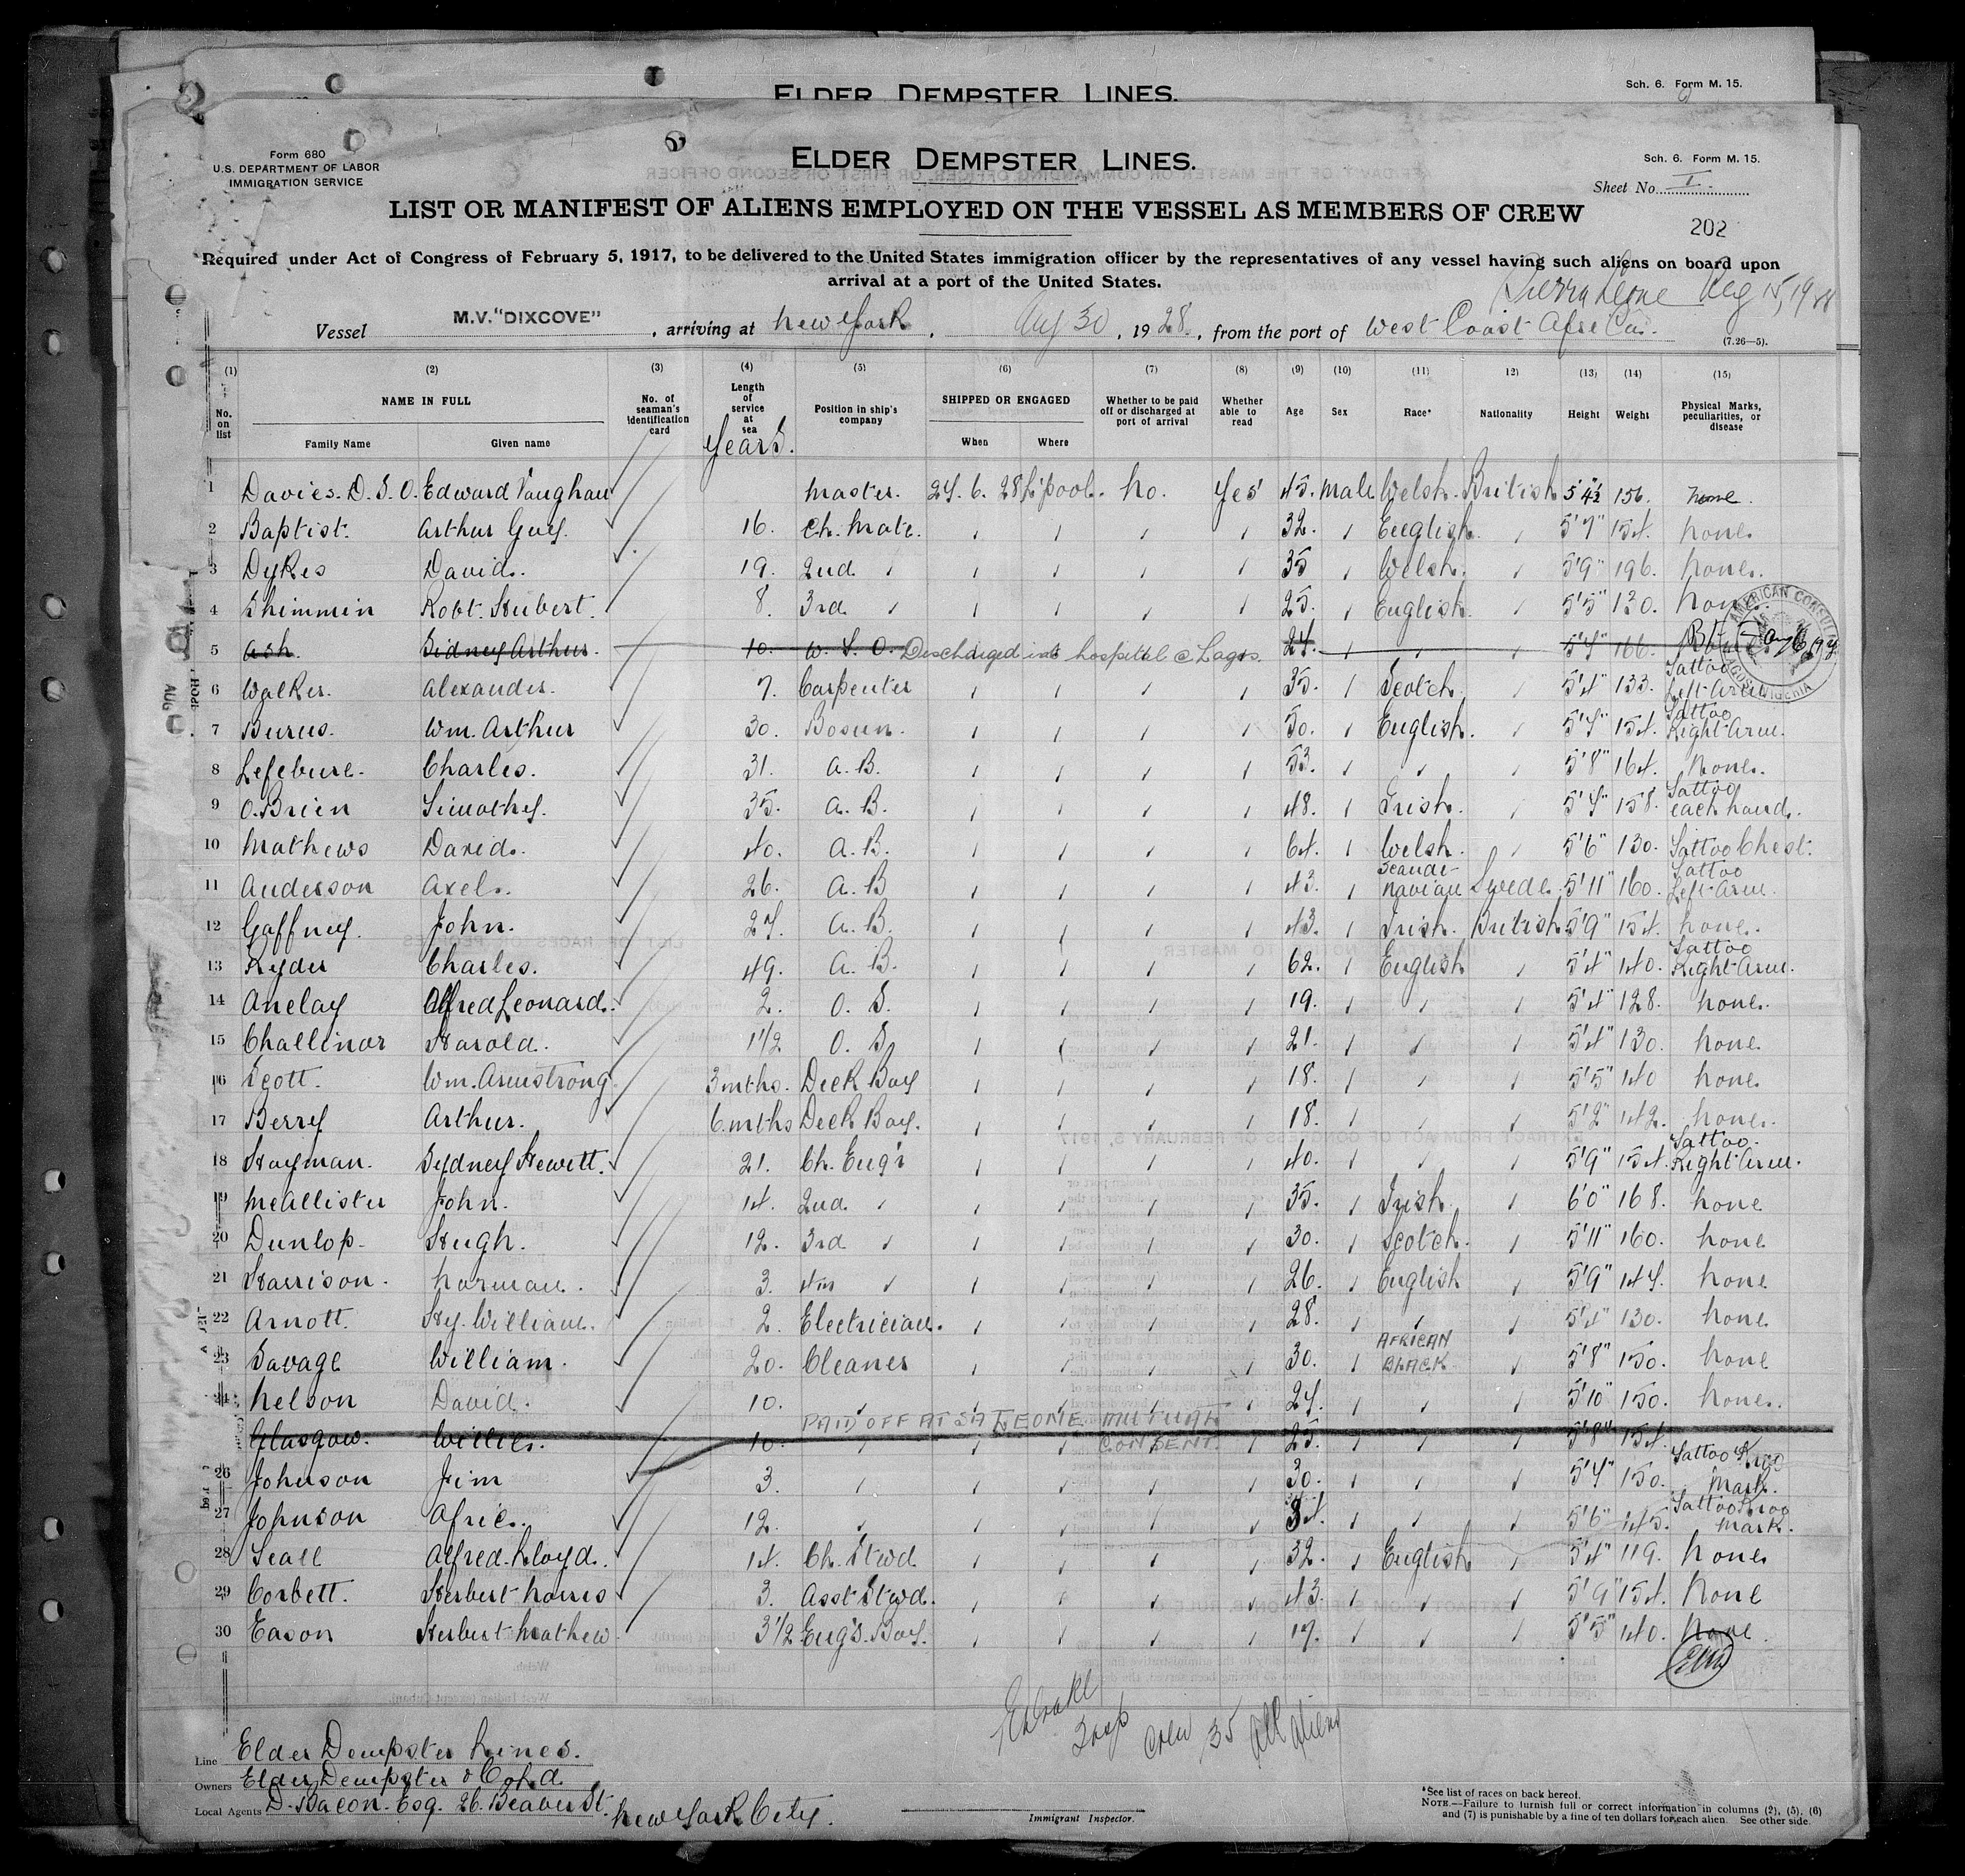 ELDER DEMPSTER LINES.
Sch. 6. Form M. 15.
Form 680
U.S. DEPARTMENT OF LABOR
IMMIGRATION SERVICE
ELDER DEMPSTER LINES.
Sch. 6. Form M. 15.
Sheet No. I.
LIST OR MANIFEST OF ALIENS EMPLOYED ON THE VESSEL AS MEMBERS OF CREW
202
Required under Act of Congress of February 5, 1917, to be delivered to the United States immigration officer by the representatives of any vessel having such aliens on board upon
arrival at a port of the United States.
Sierra Leone Aug 15, 1928
Vessel M.V. "DIXCOVE", arriving at New York, Aug 30, 1928, from the port of West Coast Africa.
(7.26—5).
(1) (2) (3) (4) (5) (6) (7) (8) (9) (10) (11) 12) (13) (14) (15)
No. on list NAME IN FULL Family Name Given name No. of seaman's identification card Length of service at sea Years. Position in ship's company SHIPPED OR ENGAGED When Where Whether to be paid off or discharged at port of arrival Whether able to read Age Sex Race* Nationality Height Weight Physical Marks, peculiarities, or disease
1 Davies. D.S.O. Edward Vaughan Master. 27.6.28 L'pool. No. Yes 45. Male Welsh. British 5'4½" 156. None.
2 Baptist. Arthur Guy. 16. Ch. Mate. 32. English. 5'7" 154. None.
3 Dykes David. 19. 2nd 35 Welsh. 5'9" 196. None.
4 Shimmin Robt. Hubert. 8. 3rd 25. English. 5'5" 130. None.
5 Ash. Sidney Arthur. 10. W.T.O. Discharged into hospital @ Lagos. 27. 5'7" 166.
AMERICAN CONSULATE LAGOS, NIGERIA
6 Walker. Alexander. 7. Carpenter 35. Scotch. 5'4" 133. Tattoo Left Arm
7 Burns. Wm. Arthur 30. Bosun. 50. English. 5'7" 154. Tattoo Right Arm.
8 Lefebure. Charles. 31. A.B. 53. 5'8" 164. None.
9 O'Brien Timothy. 35. A.B. 48. Irish. 5'7" 158. Tattoo each hand.
10 Mathews David. 40. A.B. 64. Welsh. 5'6" 130. Tattoo Chest.
11 Anderson Axel. 26. A.B 43. Scandinavian Swede. 5'11" 160. Tattoo Left Arm.
12 Gaffney. John. 27. A.B. 43. Irish. British 5'9" 154. None.
13 Ryder Charles. 49. A.B. 62. English 5'4" 140. Tattoo Right Arm.
14 Anelay Alfred Leonard. 2. O.S. 19. 5'4" 128. None.
15 Challinor Harold. 1½ O.S. 21. 5'4" 130. None
16 Scott. Wm. Armstrong 3 mths. Deck Boy 18. 5'5" 140 None
17 Berry Arthur. 6. mths Deck Boy. 18. 5'2" 142. None.
18 Hayman. Sydney Hewitt. 21. Ch. Eng'r 40. 5'9" 154. Tattoo. Right Arm.
19 McAllister John. 14. 2nd 35. Irish. 6'0" 168. None
20 Dunlop. Hugh. 12. 3rd 30. Scotch. 5'11" 160. None
21 Harrison. Norman. 3. 4th 26. English 5'9" 147. None
22 Arnott. Hy. William. 2. Electrician. 28. 5'4" 130. None
23 Savage William. 20. Cleaner 30. AFRICAN BLACK 5'8" 150. None
24 Nelson David. 10. 27. 5'10" 150. None.
PAID OFF AT SA LEONE MUTUAL CONSENT
Glasgow. Willie. 10. 25. 5'8" 154.
26 Johnson Jim 3. 30. 5'7" 150. Tattoo Kroo Mark.
27 Johnson Afric. 12. 34. 5'6" 145. Tattoo Kroo Mark.
28 Seall Alfred. Lloyd. 14. Ch. Stwd 32. English 5'4" 119. None
29 Corbett. Herbert Norris 3. Asst Stwd. 43. 5'9" 154. None
30 Eason Herbert Mathew. 3½ Eng's. Boy. 17. 5'5" 140. None.
Crew 35 All Aliens
Line Elder Dempster Lines.
Owners Elder Dempster & Co Ltd.
Local Agents D. Bacon. Esq. 26. Beaver St. New York City.
Immigrant Inspector.
*See list of races on back hereof.
NOTE.—Failure to furnish full or correct information in columns (2), (5), (6)
and (7) is punishable by a fine of ten dollars for each alien. See other side.